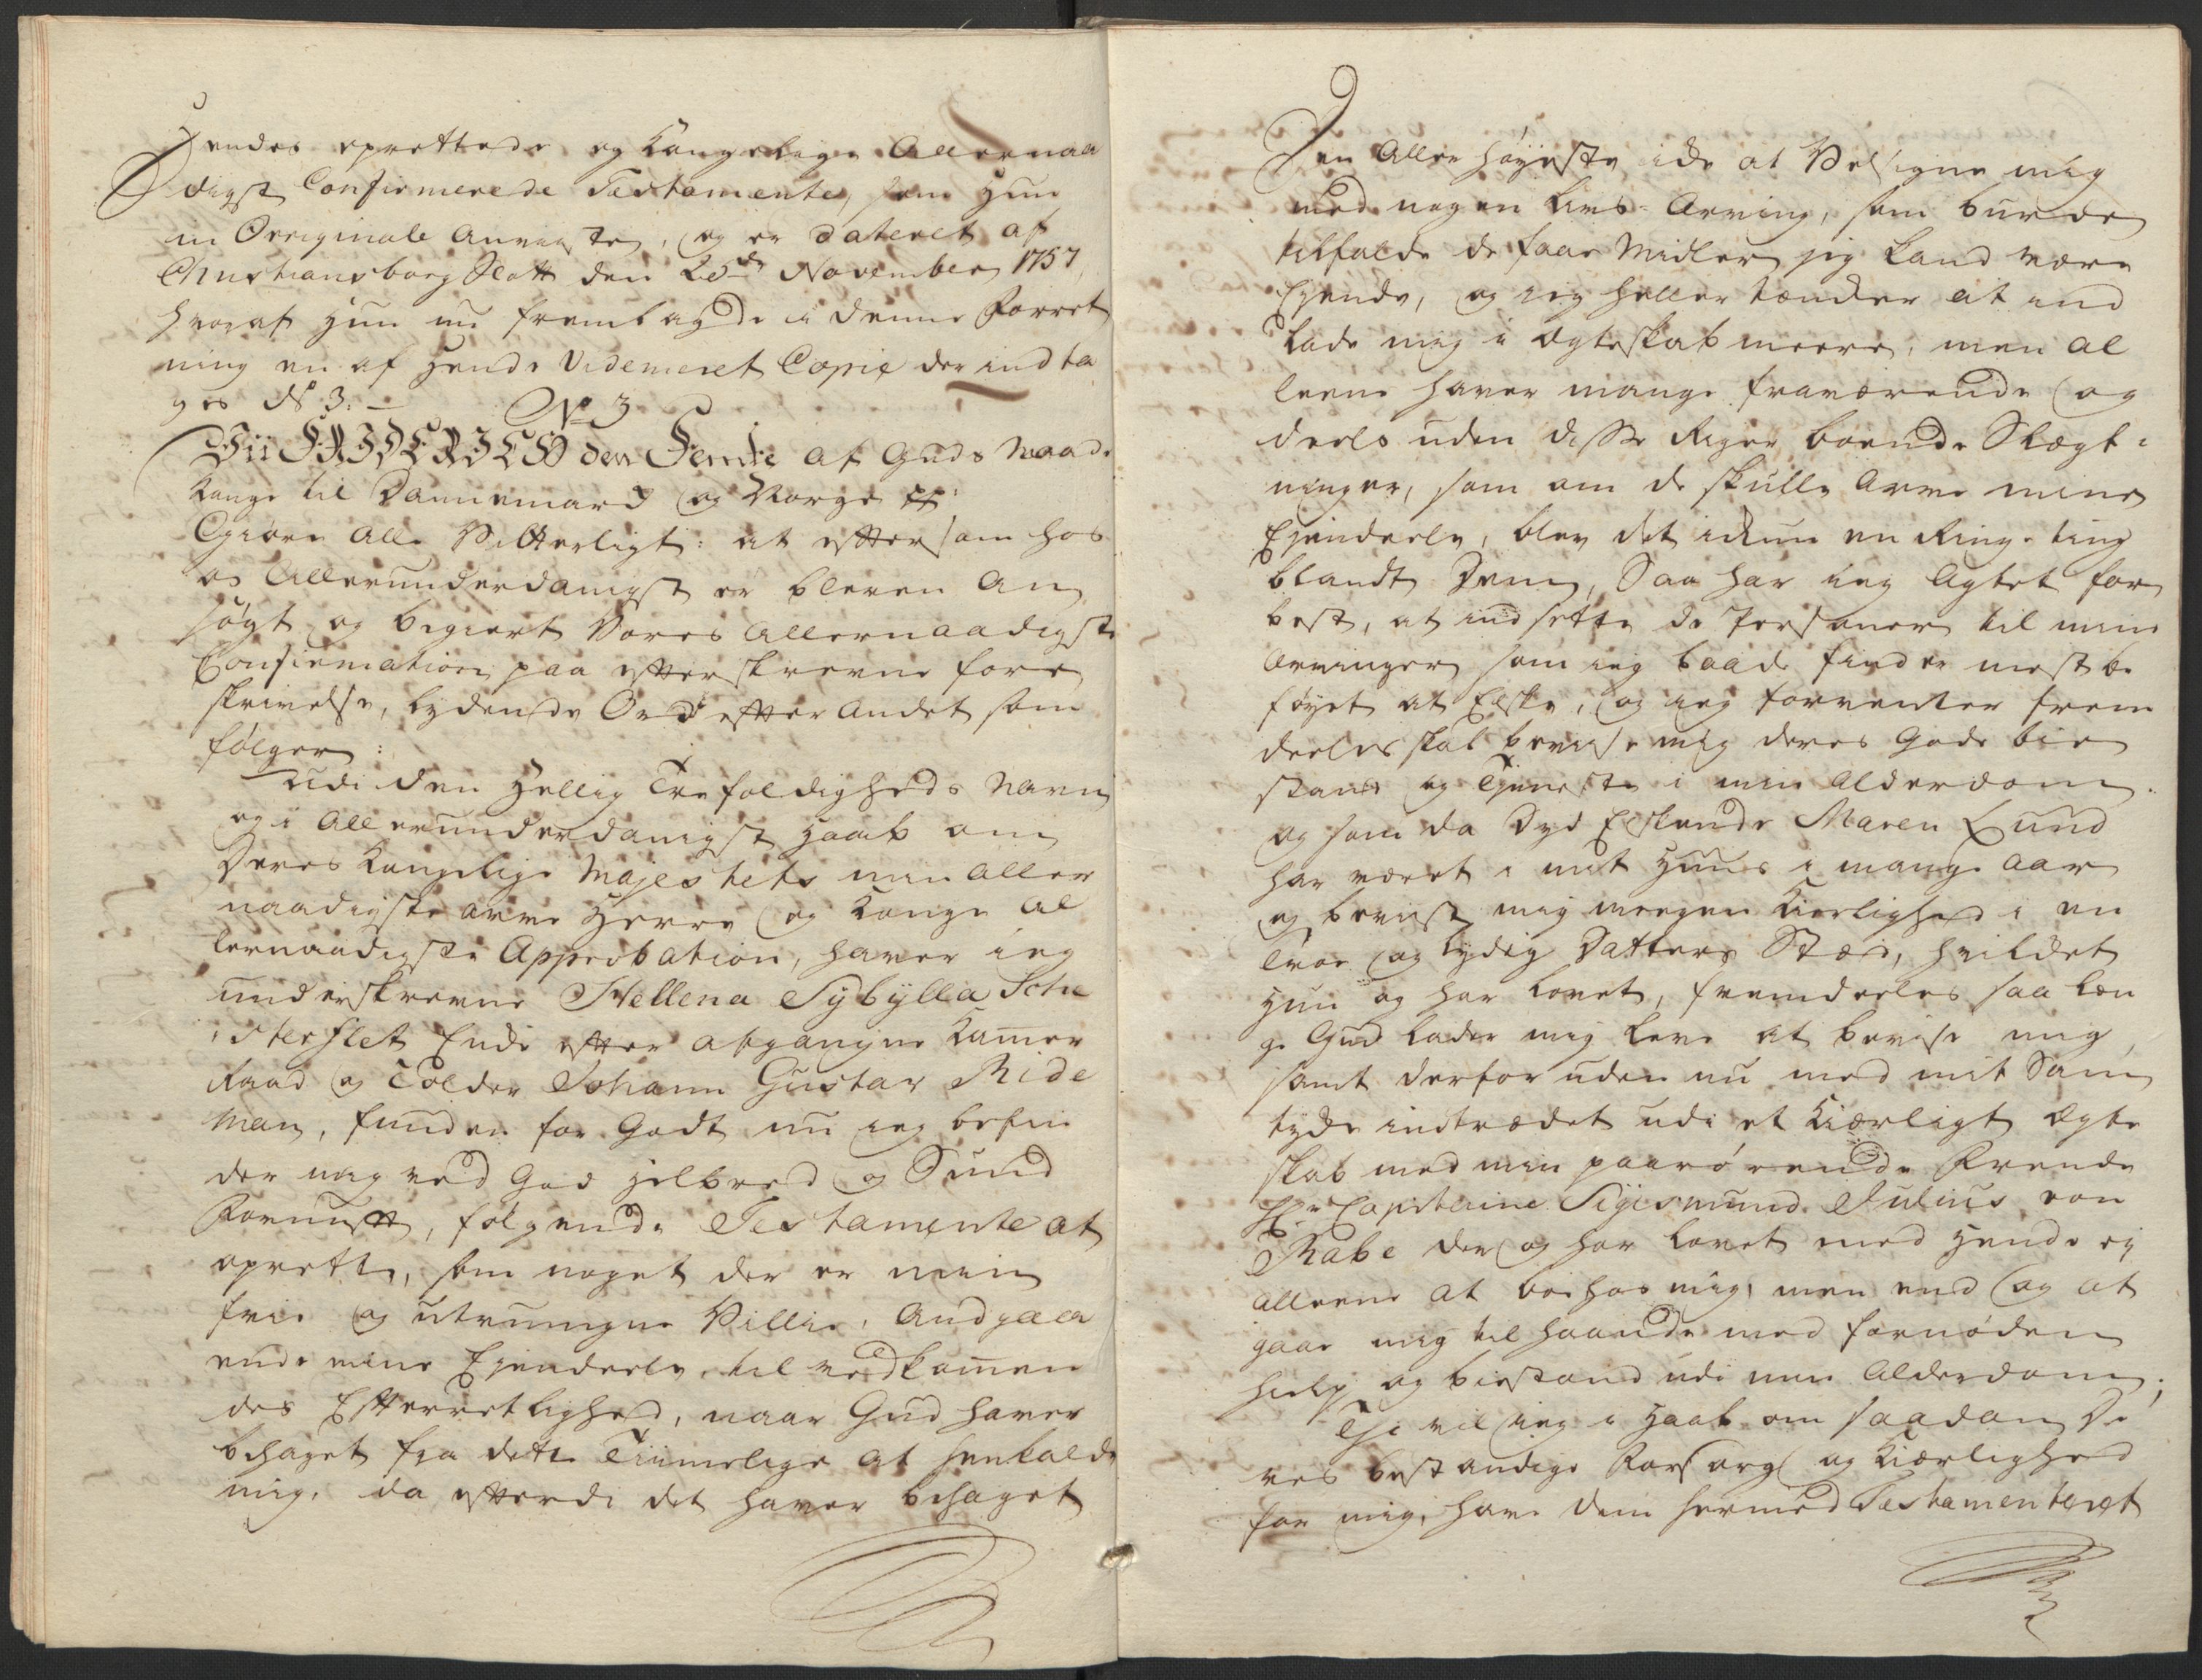 Hendes oprettede og Kongelige Allernaa
digst Confirmerede Testamente, som Hun
in Originale anviiste, og er dateret af
Christiansborg Slott den 25de November 1757
hvoraf Hun nu fremlagde i denne Forret
ning en af Hende Videmeret Copie der indta
ges No 3. –
No 3
Vii FRIDERICH den Femte af Guds Naade
Konge til Dannemarck og Norge etc:
Giøre Alle Vitterligt: at eftersom hos
os Allerunderdanigst er bleven An
søgt og begiert Vores Allernaadigste
Confirmation paa efterskrevne fore
skrivelse, lydende Ord efter andet som
følger:
Udi den Hellig Trefoldigheds Navn
og i Allerunderdanigst Haab om
Deres Kongelige Majestets min Aller
naadigste Arve Herre og Konge Al
lernaadigste Approbation, haver ieg
underskrevne Hellena Sybylla Sche
sterflet Enke efter afgangne Kamer
Raad og Tolder Johann Gustav Ride
man, funden for Godt nu ieg befin
der mig ved God Helbred og Sund
Fornuft, følgende Testamente at
oprette, som noget der er min
frie og utvungne Villie, Andgaaa
ende mine Ejendeele, til vedkomen
des Efterretlighed, naar Gud haver
behaget fra dette Timmelige at henkalde
mig, da efterdi det haver behaget
Den Allerhøyeste icke at Velsigne mig
med nogen Livs-Arving, som burde
tilfalde de faae Midler jeg kand være
Ejende, og ieg heller tencker at ind
lade mig i Ægteskab meere, men al
leene haver mange fraværende og
deels uden disse Riger boende Slægt-
ninger, som om de skulle Arve mine
Ejendeele, blev det ickun en Ringe ting
blandt Dem, Saa har ieg Agtet for
best, at indsette de Personer til mine
Arvinger som ieg baade finder mest be
føyet at Elske, og ieg forventer frem
deeles skal bevise mig deres Gode bie
stand og Tieneste i min Alderdom.
og som da Dyd Elskende Maren Lund
har været i mit Huus i mange Aar
og beviist mig megen Kierlighed i en
Troe og lydig Datters Stæd, hvilcket
Hun og har lovet, fremdeeles saa læn
ge Gud lader mig leve at bevise mig,
samt derforuden nu med mit Sam
tycke indtrædet udi et Kiærligt Ægte
skab med min paarørende Frende
Hr Capitaine Sigismund Julius von
Rabe der og har lovet med Hende ey
alleene at boe hos mig, men end og at
gaae mig til haande med fornøden
hielp og biestand udi min Alderdom;
Thi vil ieg i Haab om saadan De
res bestandige Forsorg og Kiærlighed
for mig, have dem hermed Testamenteret